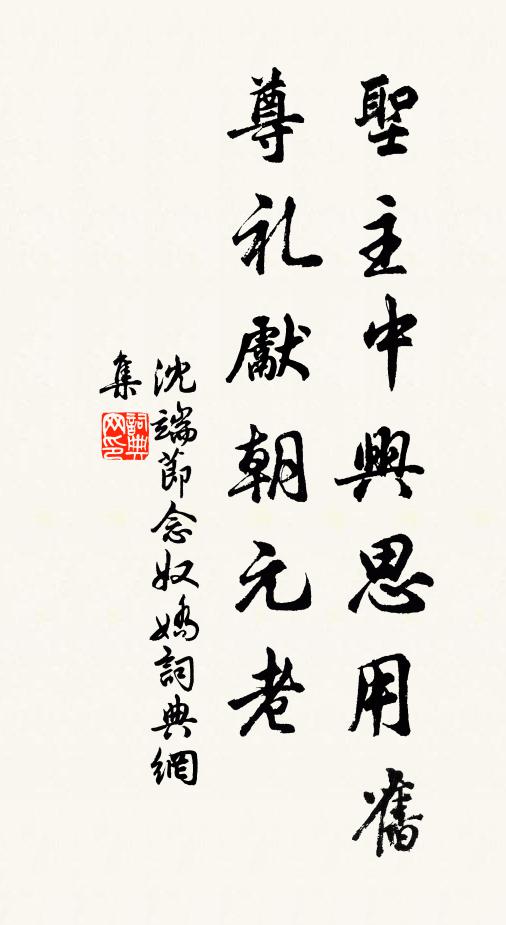 聖主中興思用舊
尊礼獻朝元老
沈端節念奴嬌詞典網
集
詞典网印